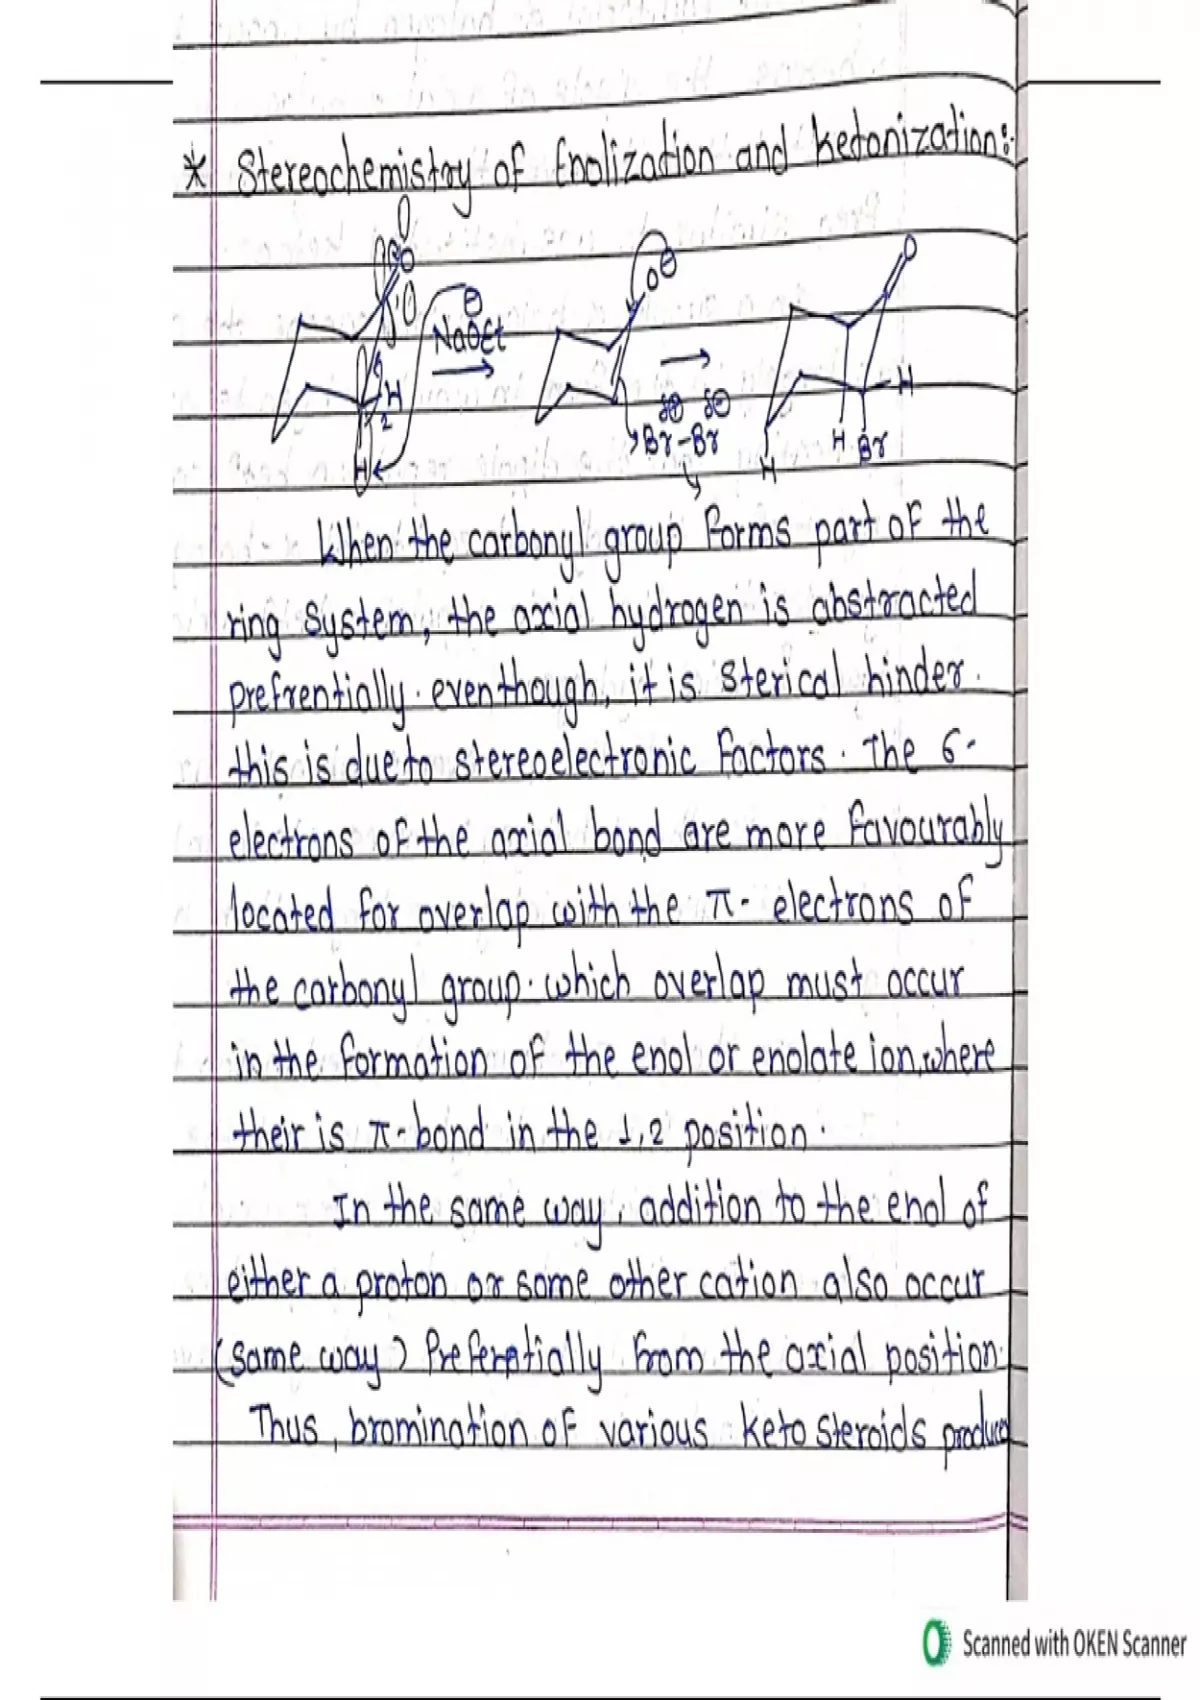 * Stereochemistry of Enolization and ketonization:-
O
H
2
H
⊖
NaOEt
O⊖
δ⊕ δ⊖
Br-Br
O
H
H Br
H
When the carbonyl group forms part of the
ring system, the axial hydrogen is abstracted
prefrentially. eventhough, it is sterical hinder.
this is due to stereoelectronic factors. The 6-
electrons of the axial bond are more favourably
located for overlap with the π- electrons of
the carbonyl group. which overlap must occur
in the formation of the enol or enolate ion, where
their is π-bond in the 1,2 position.
In the same way, addition to the enol of
either a proton or some other cation also occur
(same way) Preferentially from the axial position.
Thus, bromination of various keto steroids produces
Scanned with OKEN Scanner